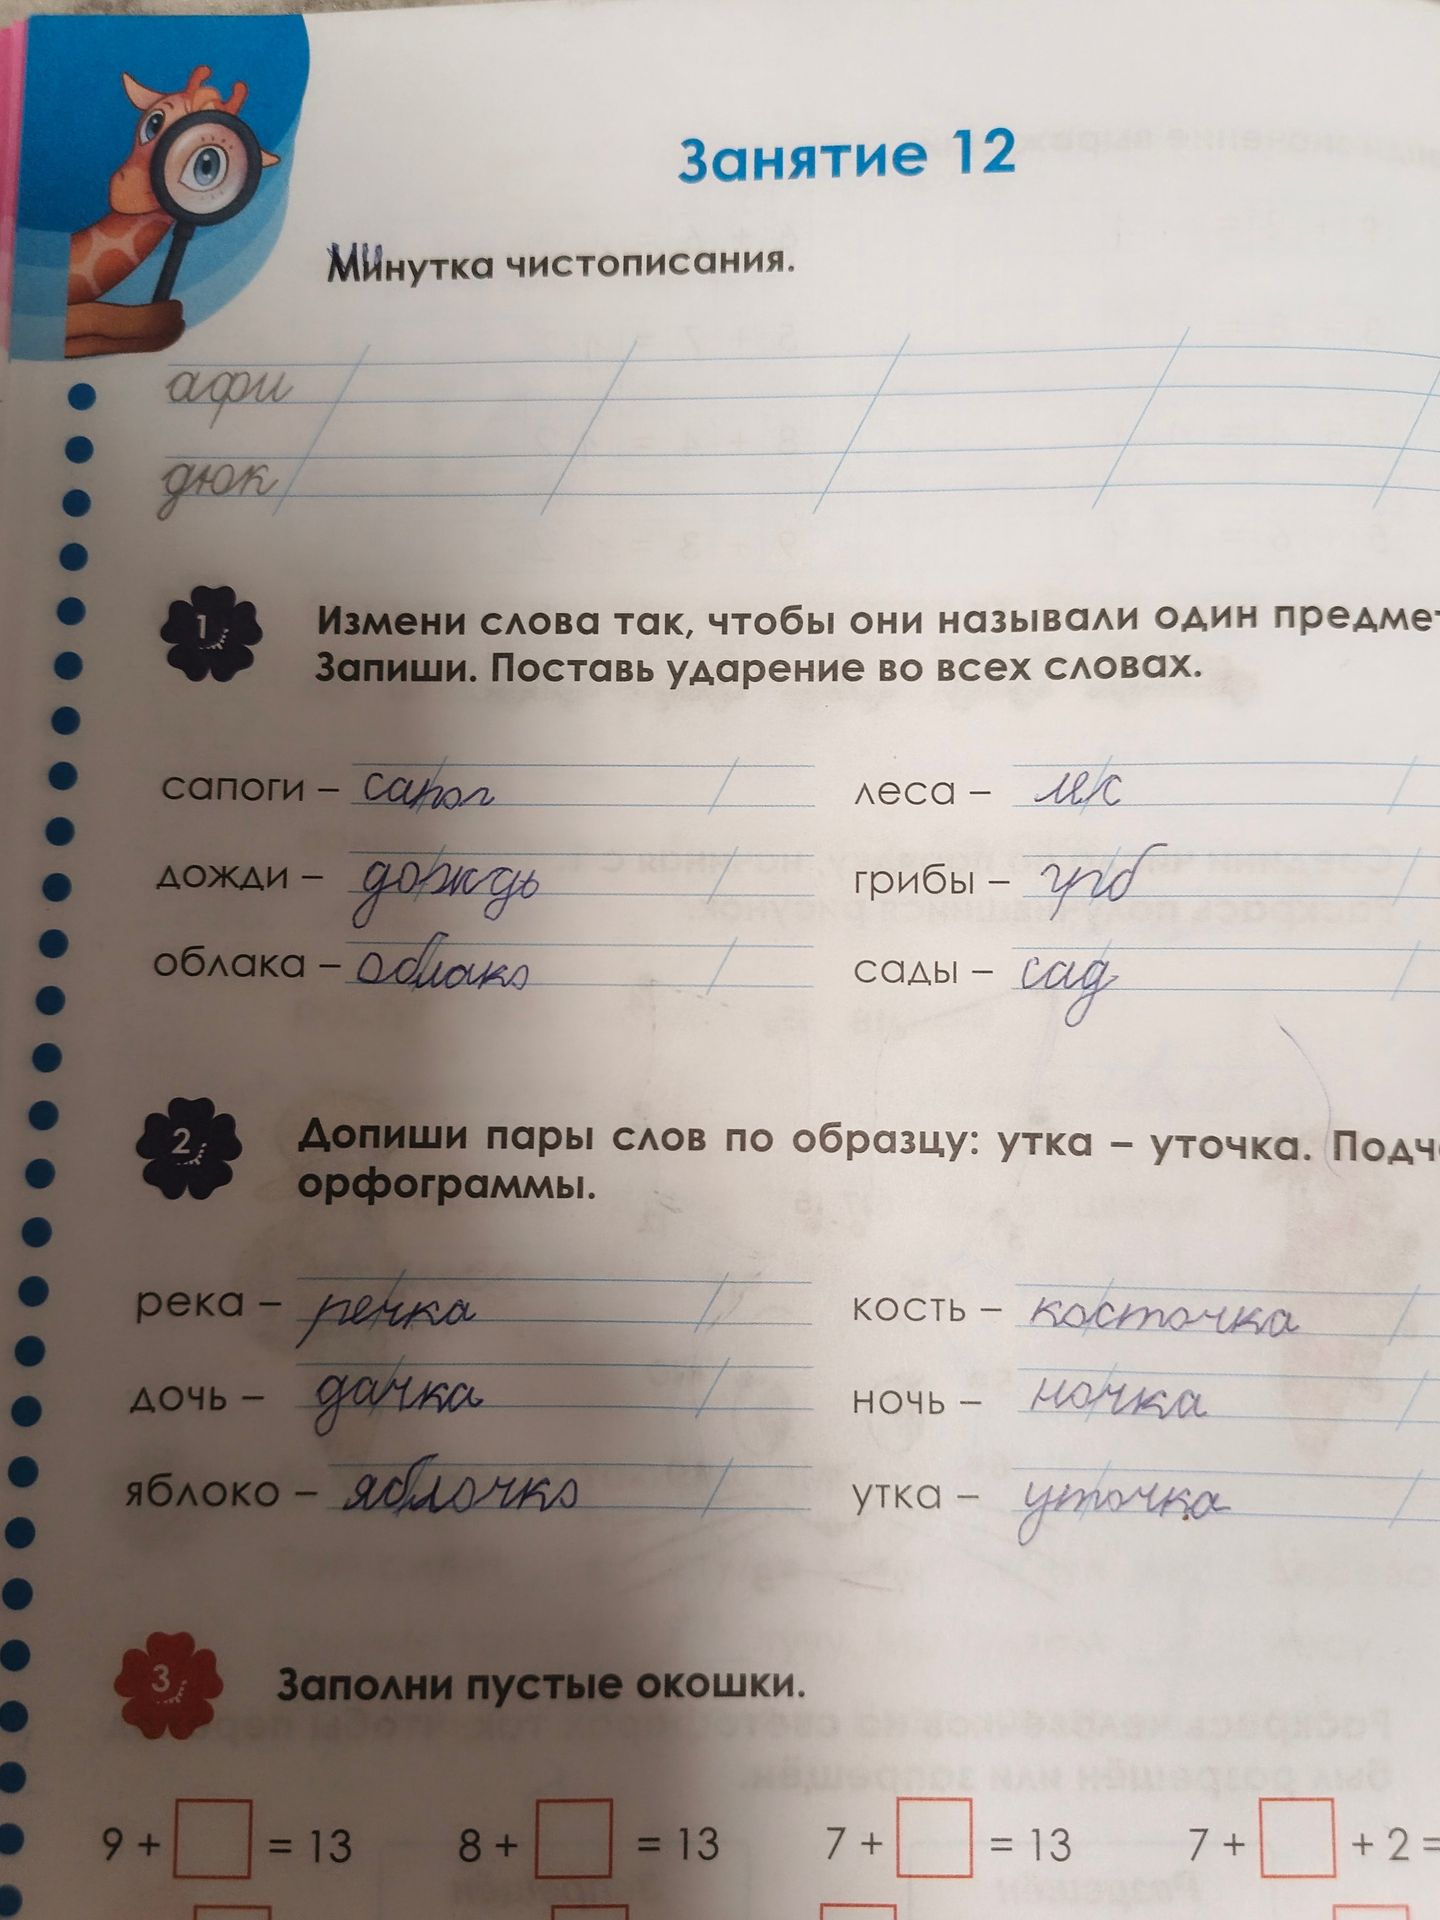 Занятие 12
Минутка чистописания.
афи
дюк
1 Измени слова так, чтобы они называли один предмет
Запиши. Поставь ударение во всех словах.
сапоги – сапог леса – лес
дожди – дождь грибы – гриб
облака – облако сады – сад
2 Допиши пары слов по образцу: утка – уточка. Подч
орфограммы.
река – речка кость – косточка
дочь – дачка ночь – ночка
яблоко – яблочко утка – уточка
3 Заполни пустые окошки.
9 + = 13 8 + = 13 7 + = 13 7 + + 2 =